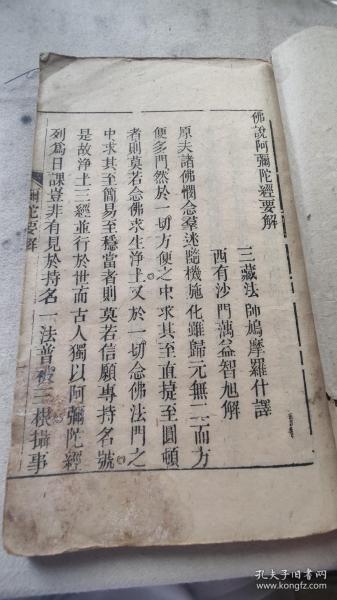 佛說阿彌陀經要解
三藏法師鳩摩羅什譯
西有沙門蕅益智旭解
原夫諸佛憫念羣迷隨機施化雖歸元無二而方
便多門然於一切方便之中求其至直捷至圓頓
者則莫若念佛求生淨土又於一切念佛法門之
中求其至簡易至穩當者則莫若信願專持名號
是故淨土三經並行於世而古人獨以阿彌陀經
列爲日課豈非有見於持名一法普被三根攝事
彌陀要解
孔夫子旧书网
www.kongfz.com